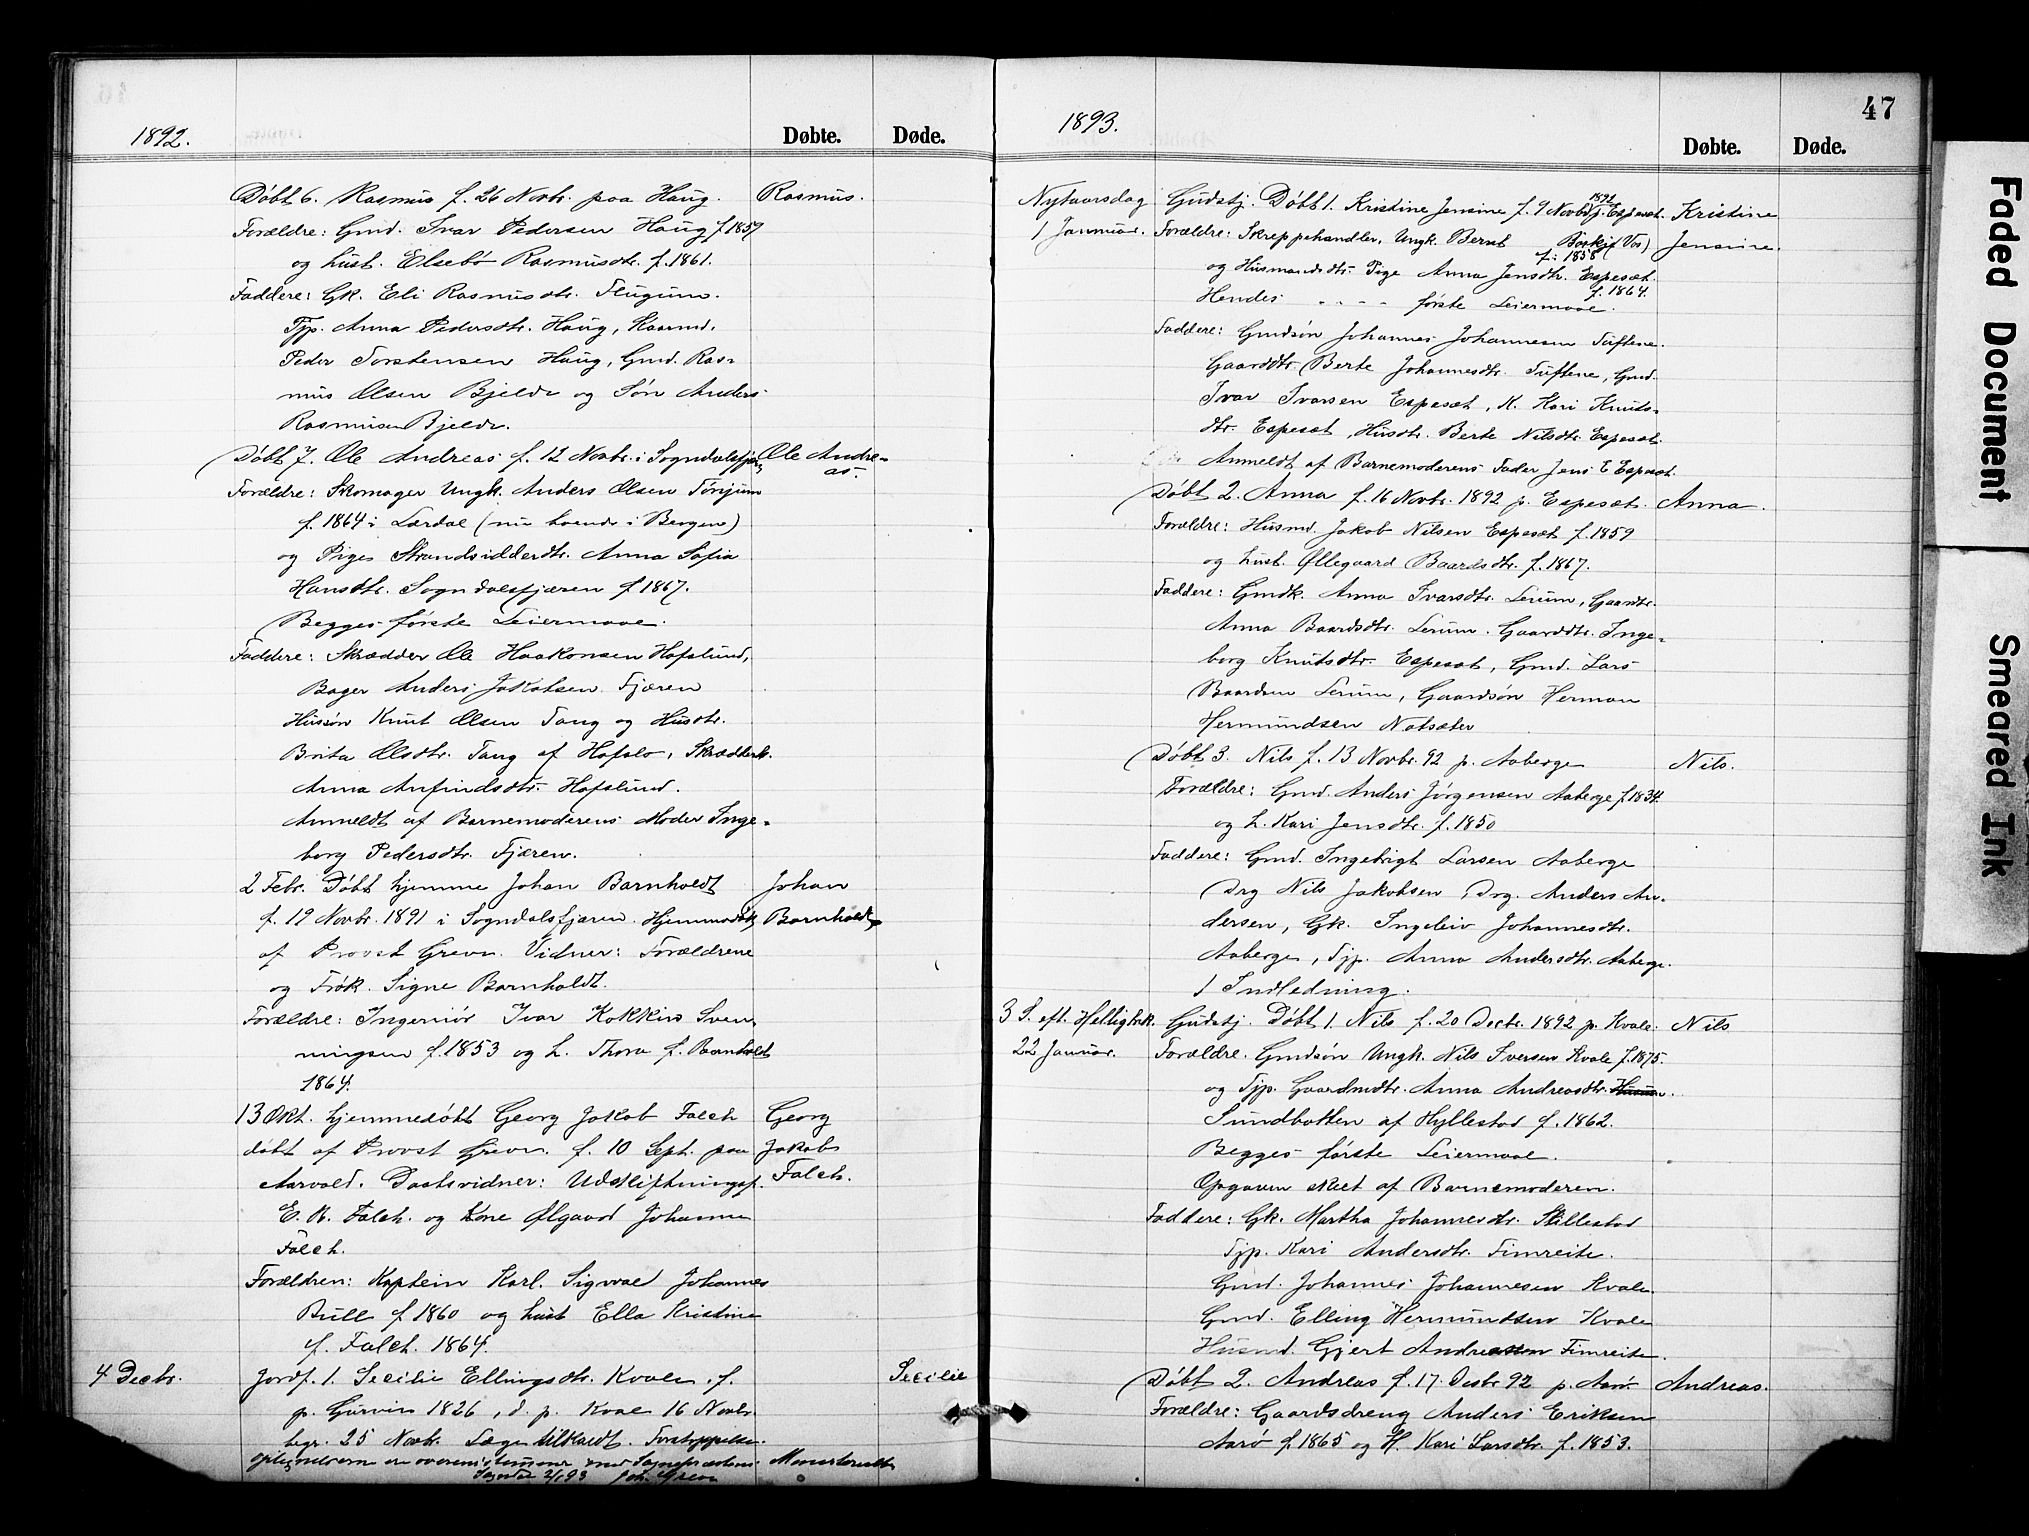 1892.
Døbte. Døde.
Døbt 6. Rasmus f. 26 Novbr. paa Haug. Rasmus.
Forældre: Gmd. Ivar Pedersen Haug f 1859
og hust. Elsebø Rasmusdtr. f. 1861.
Faddere: Gk. Eli Rasmusdtr. Flugum.
Tjp. Anna Pedersdtr. Haug, Kaarmd.
Peder Torstensen Haug, Gmd. Ras-
mus Olsen Bjelde og Søn Anders
Rasmusen Bjelde.
Døbt 7. Ole Andreas f. 12 Novbr. i Sogndalsfjær. Ole Andre-
as.
Forældre: Skomager Ungk. Anders Olsen Tønjum
f. 1864 i Lærdal (nu boende i Bergen)
og Pige Strandsidderdtr. Anna Sofia
Hansdtr. Sogndalsfjæren f 1867.
Begges første Leiermaal.
Faddere: Skrædder Ole Haakonsen Hofslund,
Bager Anders Jakobsen Fjæren
Hussøn Knut Olsen Tang og Husdtr.
Brita Olsdtr. Tang af Hafslo, Skrædderk.
Anna Anfindsdtr. Hofslund.
Anmeldt af Barnemoderens Moder Inge-
borg Pedersdtr. Fjæren.
2 Febr. Døbt hjemme Johan Barnholdt Johan
f. 19 Novbr. 1891 i Sogndalsfjæren. Hjemmedøbt Barnholdt
af Provst Greve. Vidner: Forældrene
og Frøk. Signe Barnholdt.
Forældre: Ingeniør Ivar Kokkin Sven-
ningsen f. 1853 og h. Thora f. Barnholdt
1864.
13 Okt. hjemmedøbt Georg Jakob Falch Georg
døbt af Provst Greve. f. 10 Sept. paa Jakob
Aarvold. Daabsvidner: Udskiftningsf. Falch.
E. K. Falch. og Kone Ølgaard Johanne
Falch.
Forældren: Kaptein Karl Sigvae Johannes
Bull f. 1860 og hust Ella Kristine
f. Falch. 1864.
4 Decbr. Jordf. 1. Secilie Ellingsdtr. Kvale. f. Secilie
p. Gurvin 1826, d. p. Kvale 16 Novbr
begr. 25 Novbr. Læge tilkaldt. Forstoppelse.
er overensstemmer med Sogndal 2/1 93 Joh. Greve Ministerialb

47
1893.
Døbte. Døde.
Nytaarsdag Gudstj. Døbt 1. Kristine Jensine f. 9 Novbr 1892 p. Espeset. Kristine
1 Januar. Forældre: Skreppehandler, Ungk. Bernt Børkje (Vos) Jensine.
f: 1858
og Husmandsdtr. Pige Anna Jensdtr. Espesæt.
f. 1864.
Hendes - - - - første Leiermaal.
Faddere: Gmdsøn Johannes Johannesen Tuftene.
Gaarddtr. Berte Johannesdtr. Tuftene, Gmd.
Ivar Ivarsen Espesæt, K. Kari Knuds-
dtr. Espesæt, Husdtr. Berte Nilsdtr. Espesæt.
Anmeldt af Barnemoderens Fader Jens E Espesæt.
Døbt 2. Anna f. 16 Novbr. 1892 p. Espesæt. Anna.
Forældre: Husmd. Jakob Nilsen Espesæt f. 1859
og hust. Øllegaard Baardsdtr. f. 1867.
Faddere: Gmdk. Anna Ivarsdtr. Lerum, Gaardtr.
Anna Baardsdtr. Lerum. Gaarddtr. Inge-
borg Knutsdtr. Espesæt, Gmd. Lars
Baardsen Lerum, Gaardsøn Herman
Hermundsen Notsæter
Døbt 3. Nils f. 13 Novbr. 92 p. Aaberge Nils.
Forældre: Gmd. Anders Jørgensen Aaberge f. 1834.
og h. Kari Jensdtr. f. 1850
Faddere: Gmd. Ingebrigt Larsen Aaberge
Drg Nils Jakobsen, Drg. Anders An-
dersen, Gk. Ingeleiv Johannesdtr.
Aaberge, Tjp. Anna Andersdtr. Aaberge.
1 Indledning.
3 S. eft. Helligtrek. Gudstj. Døbt 1. Nils f. 20 Decbr. 1892 p. Kvale. Nils
22 Januar. Forældre. Gmdsøn Ungk. Nils Iversen Kvale f. 1875.
og Tjp. Gaardmdtr. Anna Andreasdtr.
Sundbotten af Hyllestad f. 1862.
Begges første Leiermaal.
Opgaven skeet af Barnemoderen.
Faddere: Gk. Martha Johannesdtr. Skillestad
Tjp. Kari Andersdtr. Fimreite.
Gmd. Johannes Johannesen Kvale
Gmd. Elling Hermundsen Kvale
Husmd. Gjert Andreassen Fimreite.
Døbt 2. Andreas f. 17 Decbr 92 p. Aarø. Andreas.
Forældre: Gaardsdreng Anders Eriksen
Aarø f. 1865 og H. Kari Larsdtr. f. 1853.
Faded Document
Smeared Ink